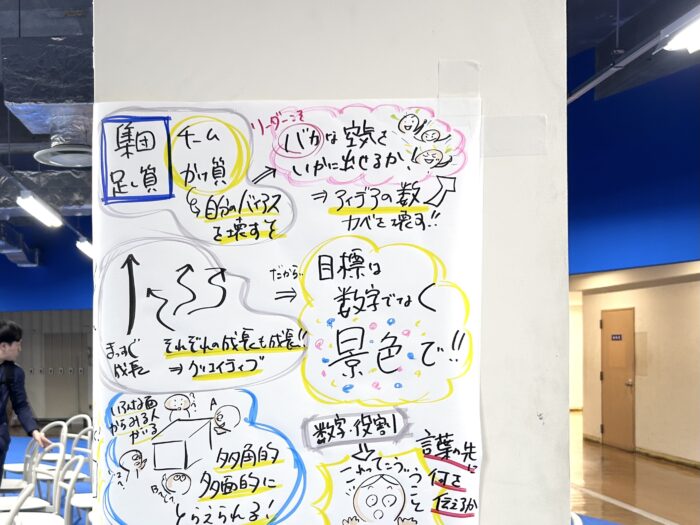 集団
足し算
チーム
かけ算
自分のバイアス
を壊すぞ
リーダーこそ
バカな空気を
いかに出せるか!
⇒ アイデアの数
カベを壊す!!
まっすぐ
成長
それぞれの成長も成長!!
⇒ クリエイティブ
だから..
⇒
目標は
数字でなく
景色で!!
いろんな面
からみる人
がいる
A
B
多角的
多面的に
とらえられる!
数字・役割
これってこういうこと
言葉の先に
何を
伝えるか